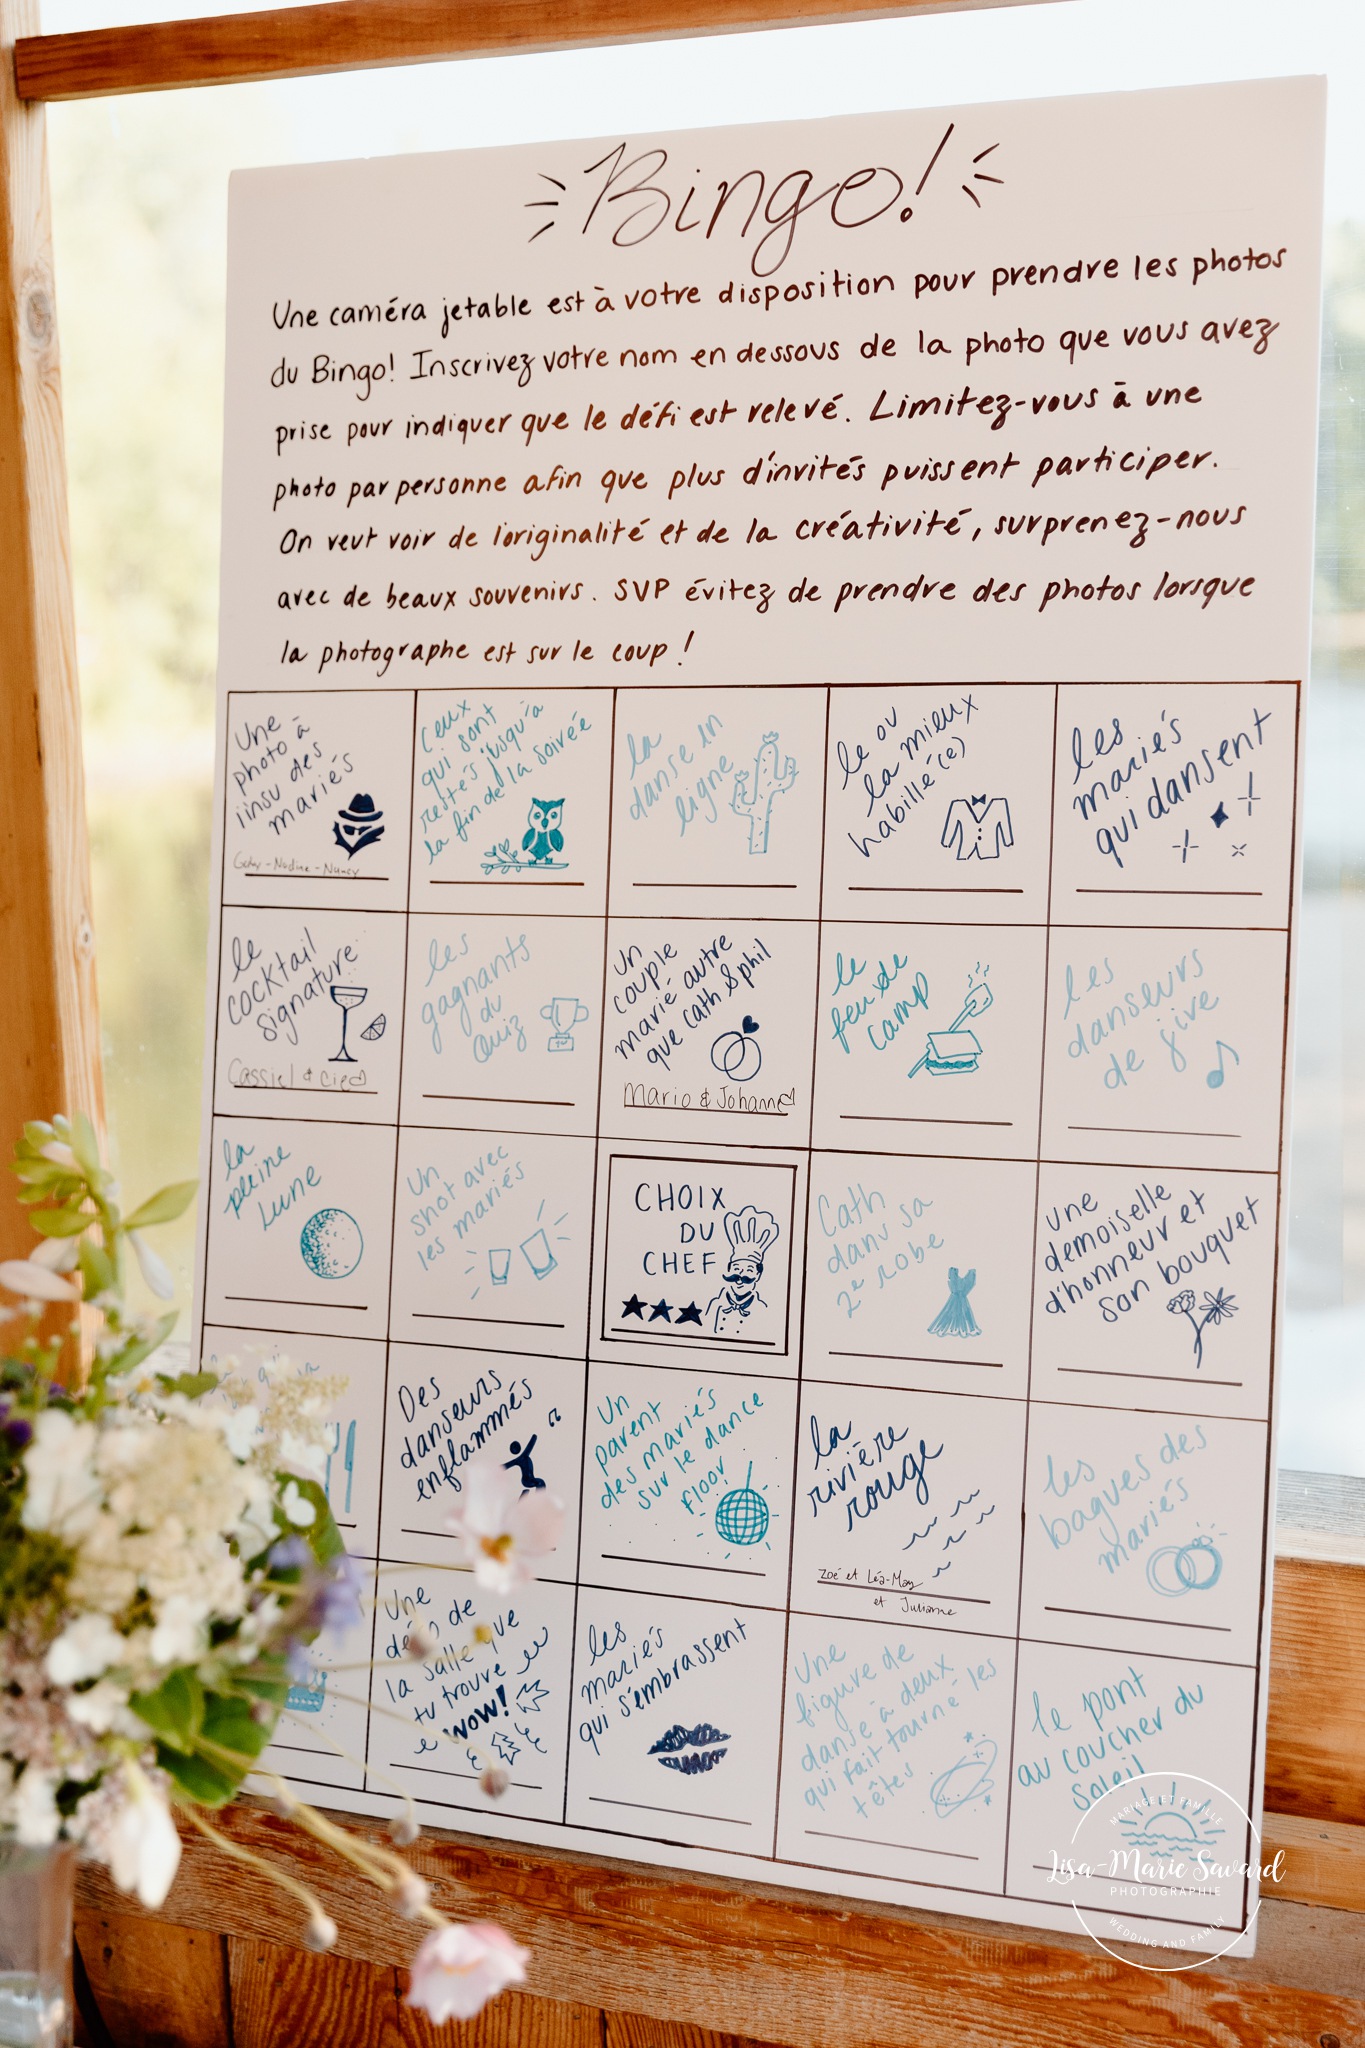 Bingo!
Une caméra jetable est à votre disposition pour prendre les photos
du Bingo! Inscrivez votre nom en dessous de la photo que vous avez
prise pour indiquer que le défi est relevé. Limitez-vous à une
photo par personne afin que plus d'invités puissent participer.
On veut voir de l'originalité et de la créativité, surprenez-nous
avec de beaux souvenirs. SVP évitez de prendre des photos lorsque
la photographe est sur le coup!
Une
photo à
l'insu des
mariés
- Nadine - Nancy
Ceux
qui sont
restés jusqu'à
la fin de la soirée
la
danse en
ligne
le ou
la mieux
habillé(e)
les
mariés
qui dansent
le
cocktail
signature
Cassiel &
les
gagnants
du
Quiz
Un
couple
marié autre
que Cath & phil
Mario & Johanne
le
feu de
camp
les
danseurs
de jive
la
pleine
lune
Un
shot avec
les mariés
CHOIX
DU
CHEF
Cath
dans sa
2e robe
une
demoiselle
d'honneur et
son bouquet
Des
danseurs
enflammés
Un
parent
des mariés
sur le dance
floor
la
rivière
rouge
Zoé et Léa-May
et Julianne
les
bagues des
mariés
Une
déco de
la salle que
tu trouve
WOW!
les
mariés
qui s'embrassent
Une
figure de
danse à deux
qui fait tourné les
têtes
le pont
au coucher du
soleil
MARIAGE ET FAMILLE
Lisa-Marie Savard
PHOTOGRAPHIE
WEDDING AND FAMILY